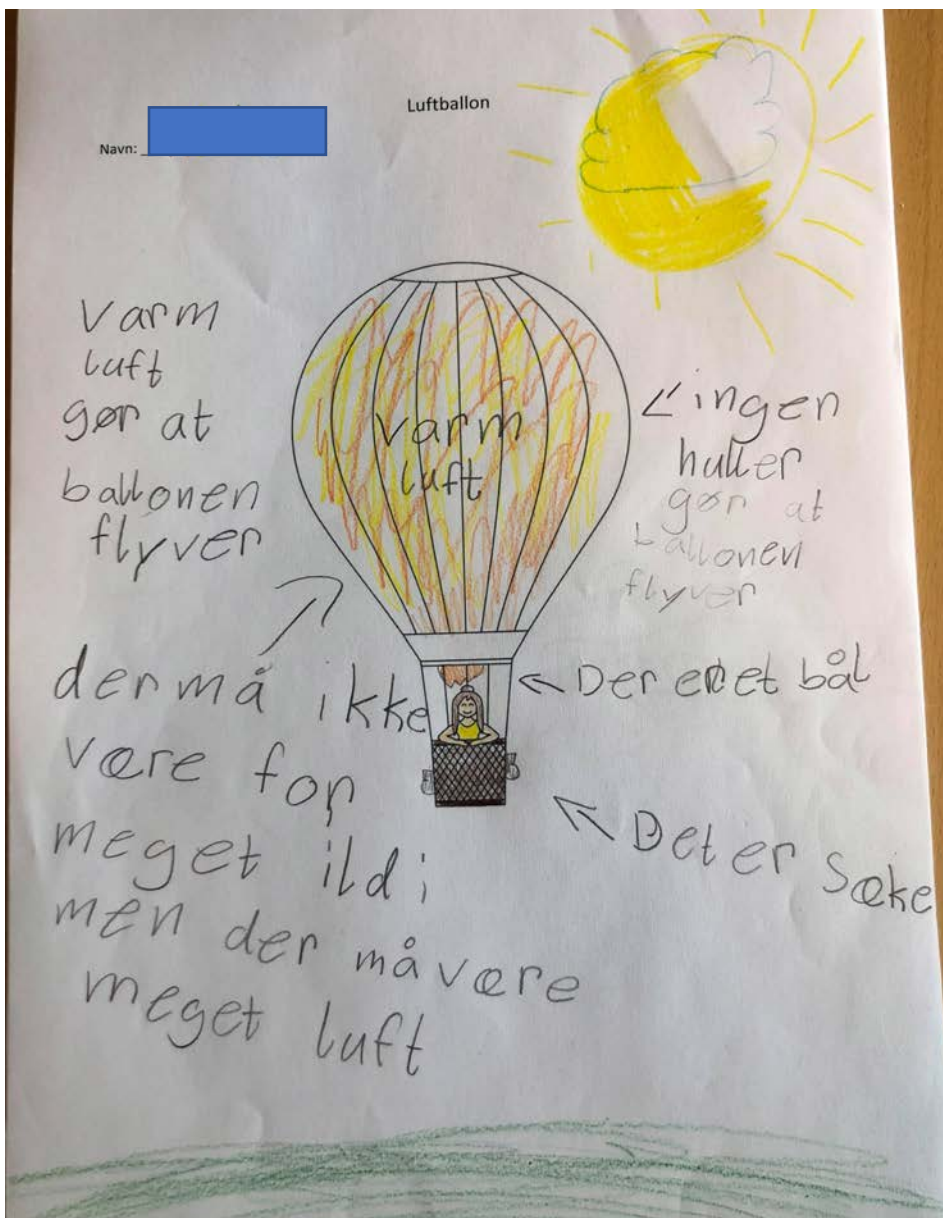 Luftballon
Navn:
Varm
luft
gør at
ballonen
flyver
varm
luft
ingen
huller
gør at
ballonen
flyver
der må ikke
være for
meget ild i
men der må være
meget luft
Der er et bål
Det er Sæke